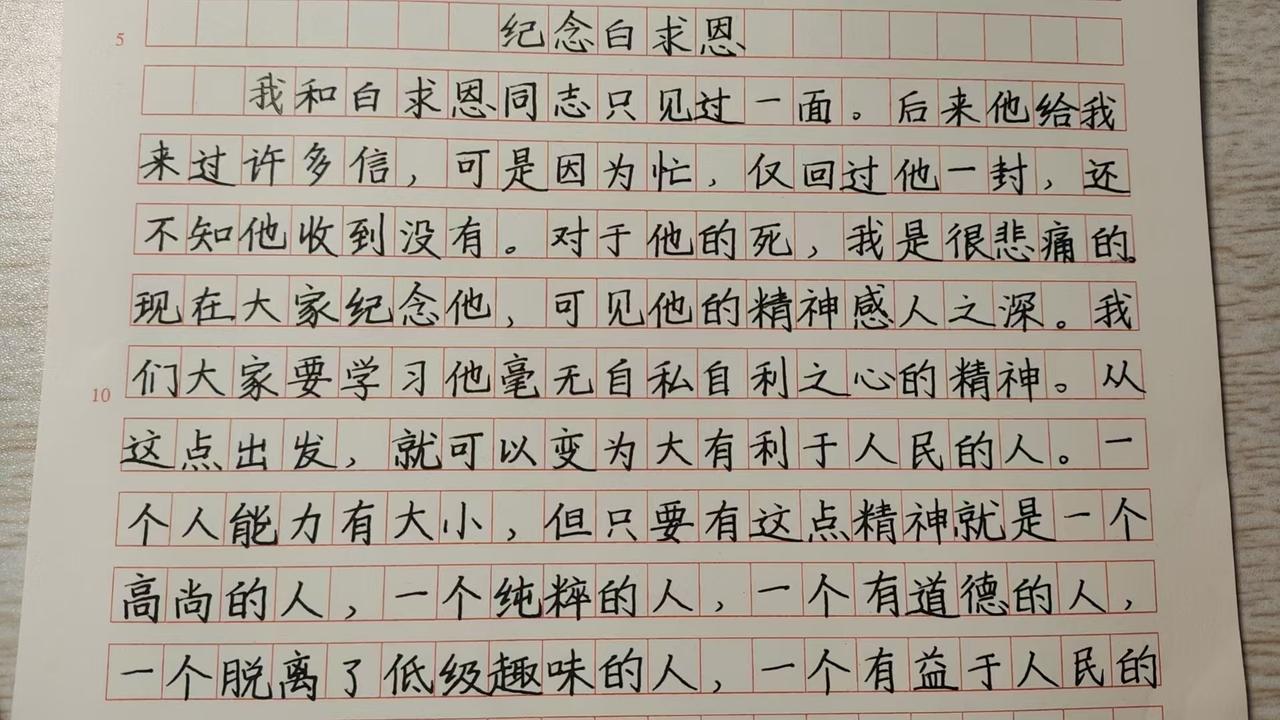 5
纪念白求恩
我和白求恩同志只见过一面。后来他给我
来过许多信，可是因为忙，仅回过他一封，还
不知他收到没有。对于他的死，我是很悲痛的。
现在大家纪念他，可见他的精神感人之深。我
们大家要学习他毫无自私自利之心的精神。从
10
这点出发，就可以变为大有利于人民的人。一
个人能力有大小，但只要有这点精神，就是一个
高尚的人，一个纯粹的人，一个有道德的人，
一个脱离了低级趣味的人，一个有益于人民的